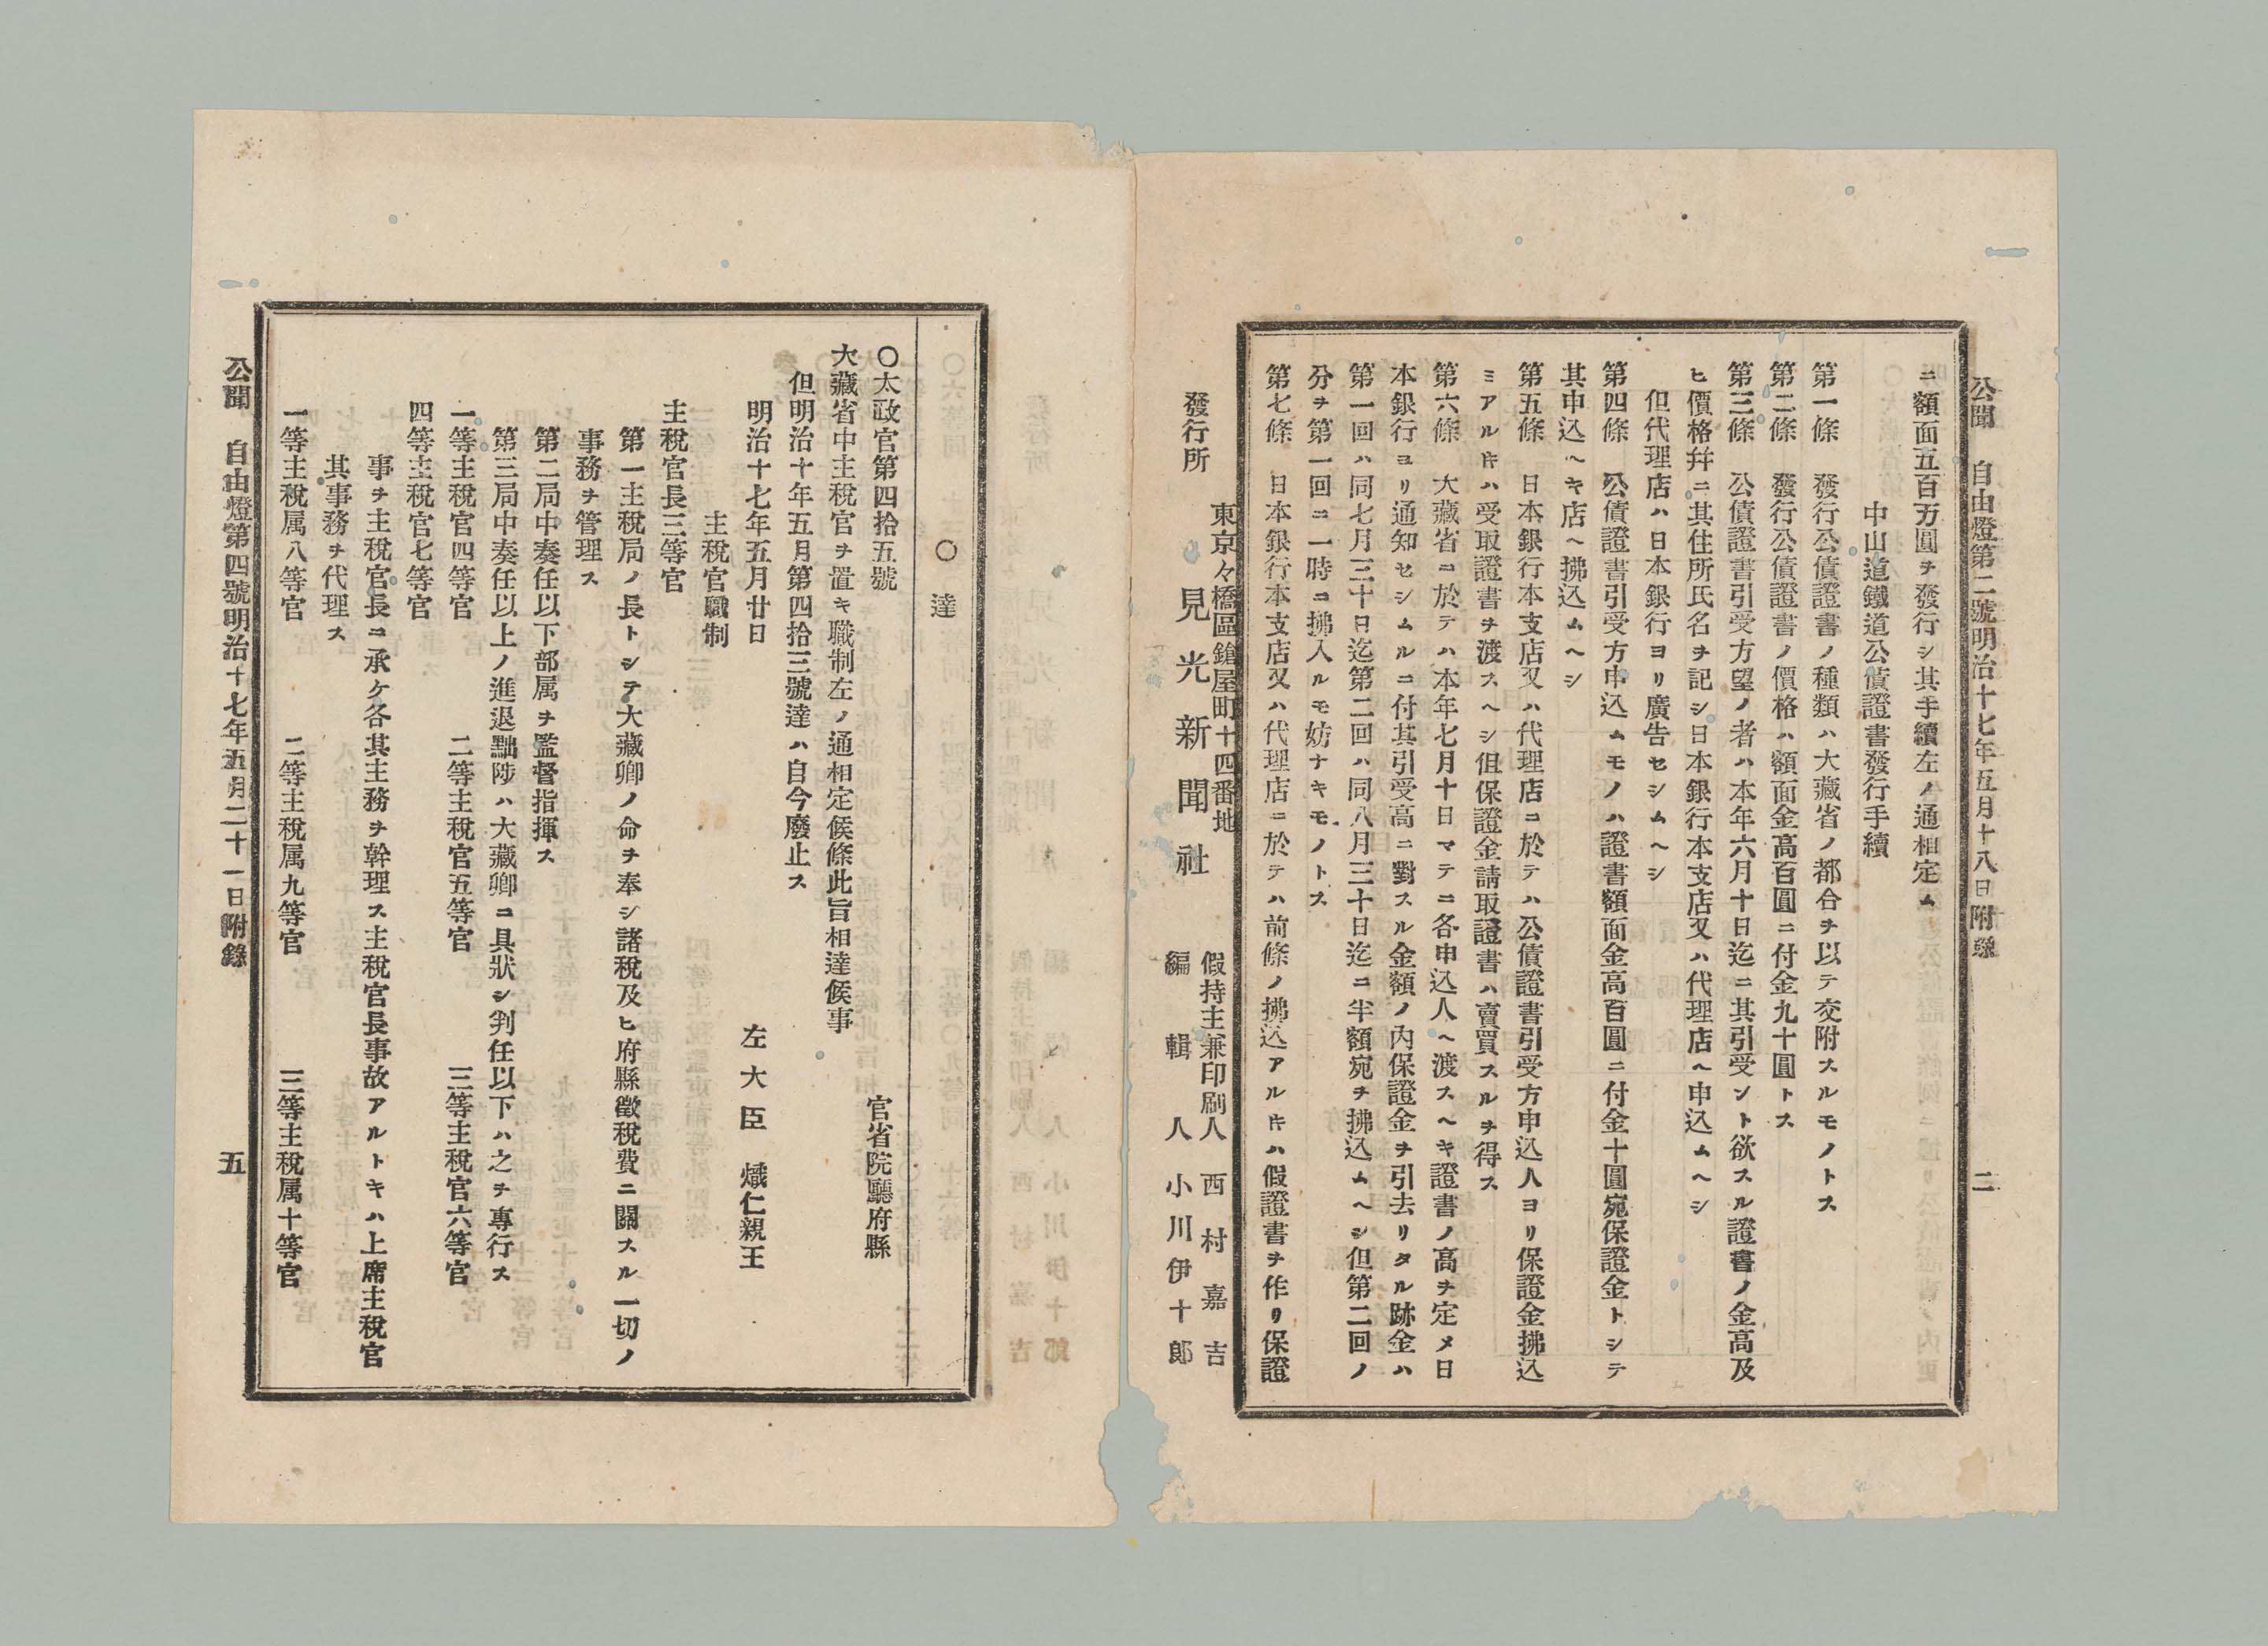 公聞 自由燈第二號明治十七年五月十八日附錄 二
ニ額面五百万圓ヲ發行シ其手續左ノ通相定ム
中山道鐵道公債證書發行手續
第一條 發行公債證書ノ種類ハ大藏省ノ都合ヲ以テ交附スルモノトス
第二條 發行公債證書ノ價格ハ額面金高百圓ニ付金九十圓トス
第三條 公債證書引受方望ノ者ハ本年六月十日迄ニ其引受ント欲スル證書ノ金高及
ヒ價格幷ニ其住所氏名ヲ記シ日本銀行本支店又ハ代理店ヘ申込ムヘシ
但代理店ハ日本銀行ヨリ廣告セシムヘシ
第四條 公債證書引受方申込ムモノハ證書額面金高百圓ニ付金十圓宛保證金トシテ
其申込ヘキ店ヘ拂込ムヘシ
第五條 日本銀行本支店又ハ代理店ニ於テハ公債證書引受方申込人ヨリ保證金拂込
ミアルトキハ受取證書ヲ渡スヘシ但保證金請取證書ハ賣買スルヲ得ス
第六條 大藏省ニ於テハ本年七月十日マテニ各申込人ヘ渡スヘキ證書ノ高ヲ定メ日
本銀行ヨリ通知セシムルニ付其引受高ニ對スル金額ノ內保證金ヲ引去リタル跡金ハ
第一回ハ同七月三十日迄第二回ハ同八月三十日迄ニ半額宛ヲ拂込ムヘシ但第二回ノ
分ヲ第一回ニ一時ニ拂入ルモ妨ナキモノトス
第七條 日本銀行本支店又ハ代理店ニ於テハ前條ノ拂込アルトキハ假證書ヲ作リ保證
東京々橋區鎗屋町十四番地
發行所 見光新聞社
假持主兼印刷人 西村嘉吉
編輯人 小川伊十郎
○達
○太政官第四拾五號
官省院廳府縣
大藏省中主稅官ヲ置キ職制左ノ通相定候條此旨相達候事
但明治十年五月第四拾三號達ハ自今廢止ス
明治十七年五月廿日 左大臣 熾仁親王
主稅官職制
主稅官長三等官
第一主稅局ノ長トシテ大藏卿ノ命ヲ奉シ諸稅及ヒ府縣徵稅費ニ關スル一切ノ
事務ヲ管理ス
第二局中奏任以下部属ヲ監督指揮ス
第三局中奏任以上ノ進退黜陟ハ大藏卿ニ具狀シ判任以下ハ之ヲ專行ス
一等主稅官四等官 二等主稅官五等官 三等主稅官六等官
四等主稅官七等官
事ヲ主稅官長ニ承ケ各其主務ヲ幹理ス主稅官長事故アルトキハ上席主稅官
其事務ヲ代理ス
一等主稅属八等官 二等主稅属九等官 三等主稅属十等官
公聞 自由燈第四號明治十七年五月二十一日附錄 五